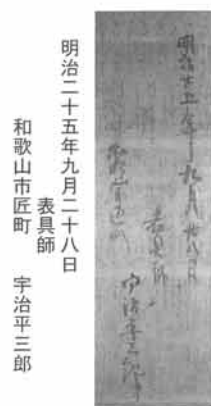 明治廿五年九月廿八日
表具師
和歌山市匠町
宇治平三郎
明治二十五年九月二十八日
表具師
和歌山市匠町　宇治平三郎